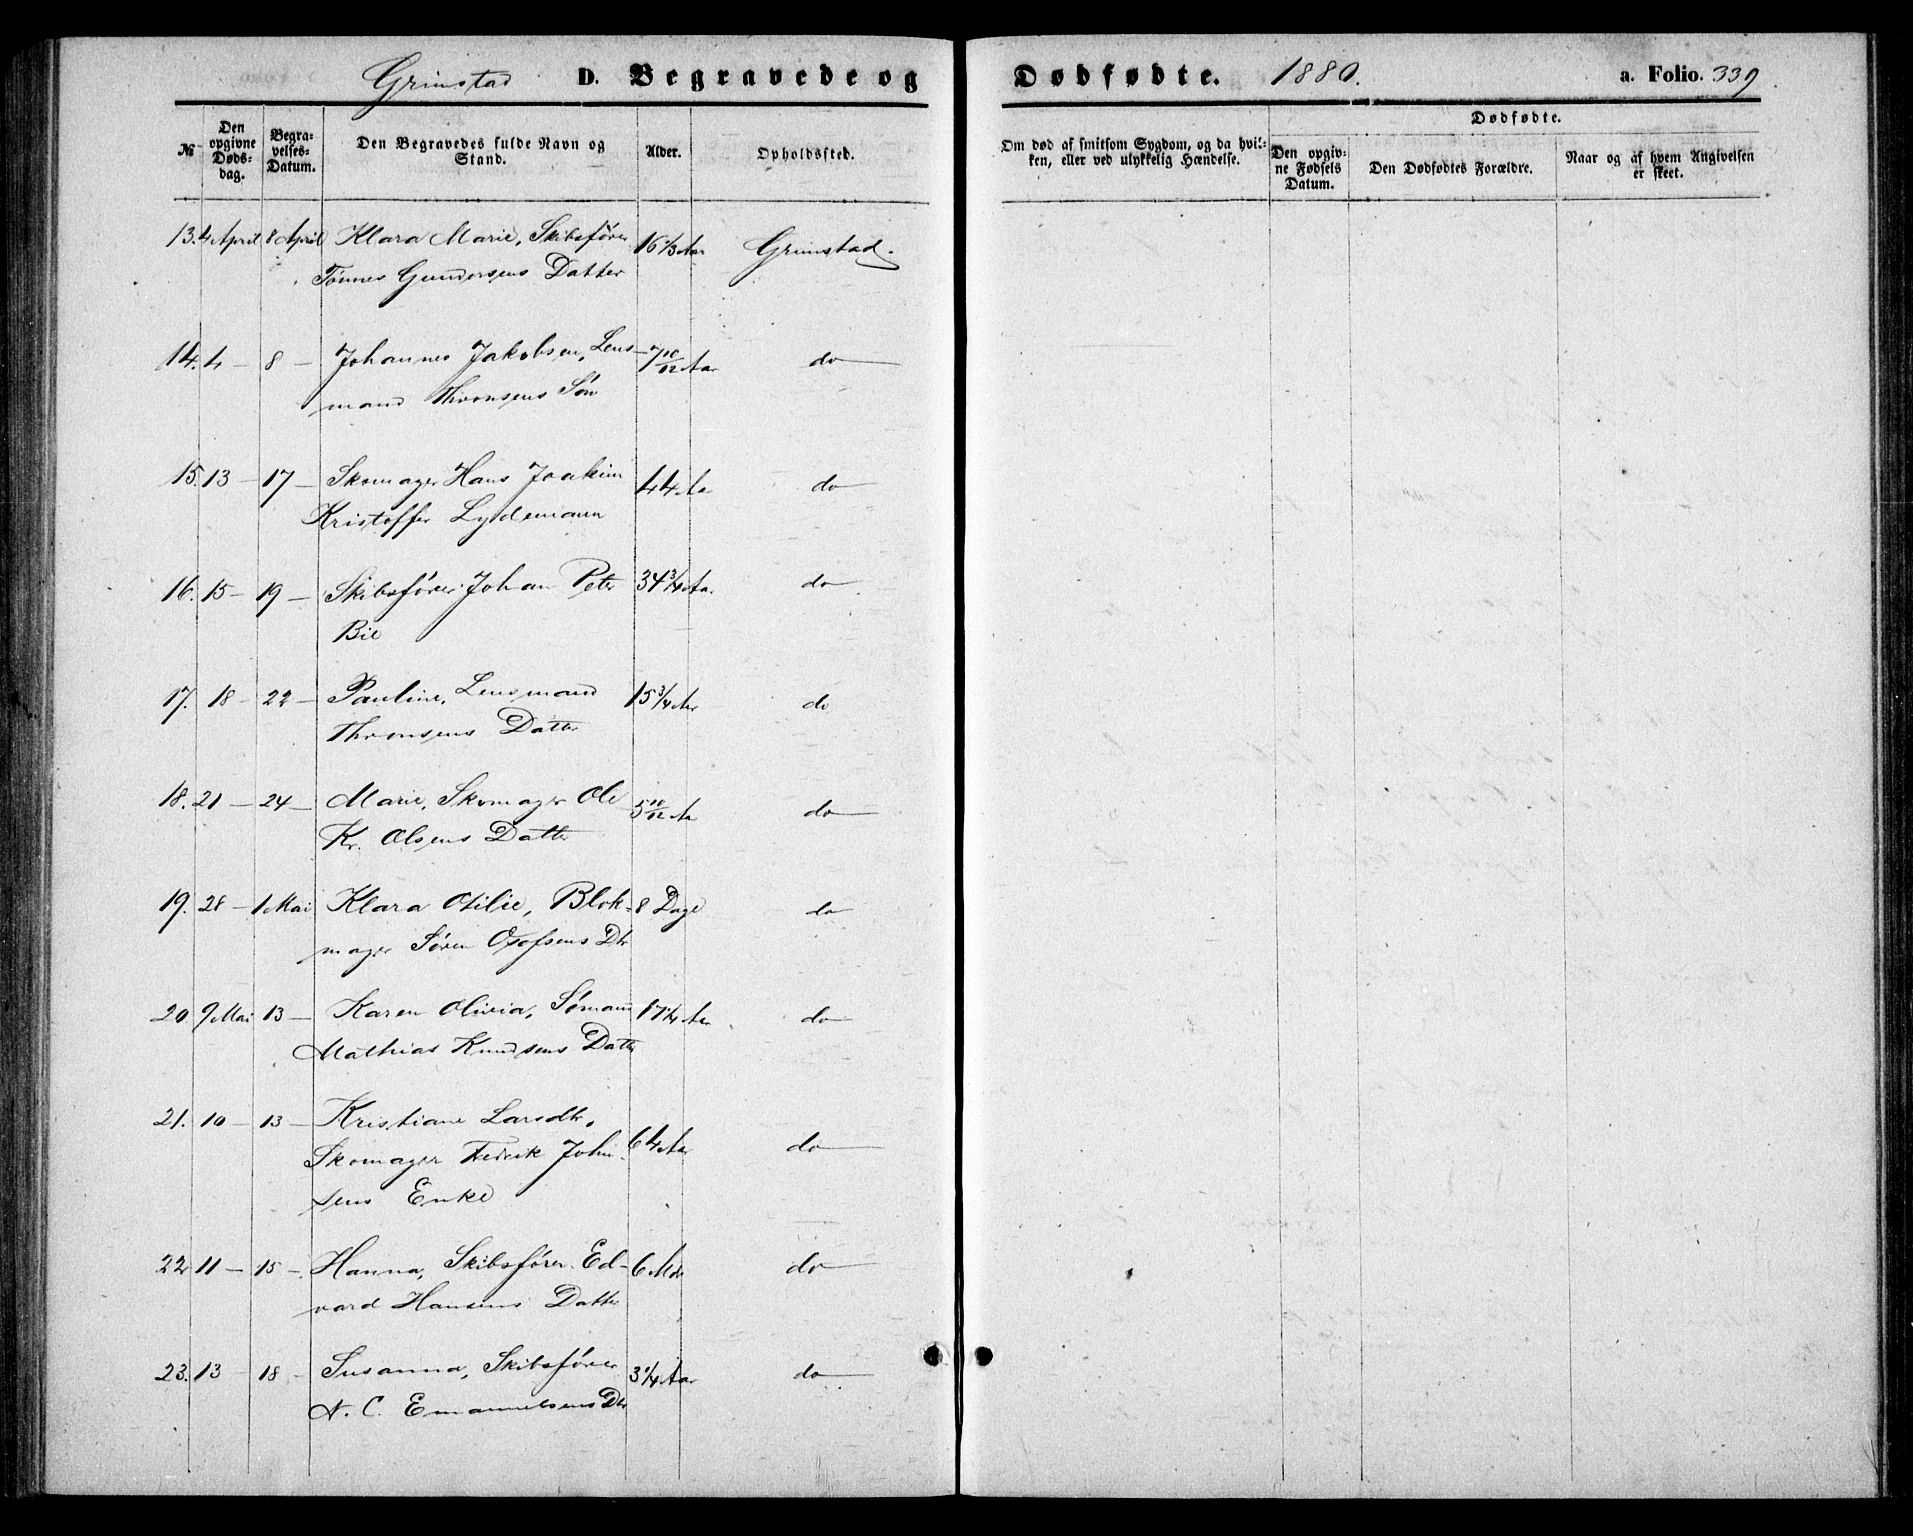 Grimstad D. Begravede og Dødfødte. 1880. a. Folio. 339
№ Den opgivne Døds-dag. Begra-velses-Datum. Den Begravedes fulde Navn og Stand. Alder. Opholdssted. Om død af smitsom Sygdom, og da hvil-ken, eller ved ulykkelig Hændelse. Dødfødte. Den opgiv-ne Fødsels Datum. Den Dødfødtes Forældre. Naar og af hvem Angivelsen er skeet.
13. 4 April 8 April Klara Marie, Skibsfører 16 1/3 Aar Grimstad.
Tønnes Gundersens Datter
14. 4 – 8 – Johannes Jakobsen, Lens- 7 10/12 Aar do
mand Thronsens Søn
15. 13 – 17 – Skomager Hans Joakim 44 Aar do
Kristoffer Lydemann
16. 15 – 19 – Skibsfører Johan Peter 34 3/4 Aar do
Bie
17. 18 – 22 – Pauline, Lensmand 15 3/4 Aar do
Thronsens Datter
18. 21 – 24 – Marie, Skomager Ole 5 10/12 Aa do
Kr. Olsens Datter
19. 28 – 1 Mai Klara Otilie, Blok- 8 Dage do
mager Søren Dtr
20 9 Mai 13 – Karen Olivia, Sømand 17 1/4 Aar do
Mathias Knudsens Datter
21. 10 – 13 – Kristiane Larsdtr, 64 Aar do
Skomager Fredrik John-
sens Enke
22 11 – 15 – Hanna, Skibsfører Ed- 6 Mdr do
vard Hansens Datter
23. 13 – 18 – Susanna, Skibsfører 3 1/4 Aar do
N. C. Emanuelsens Dtr